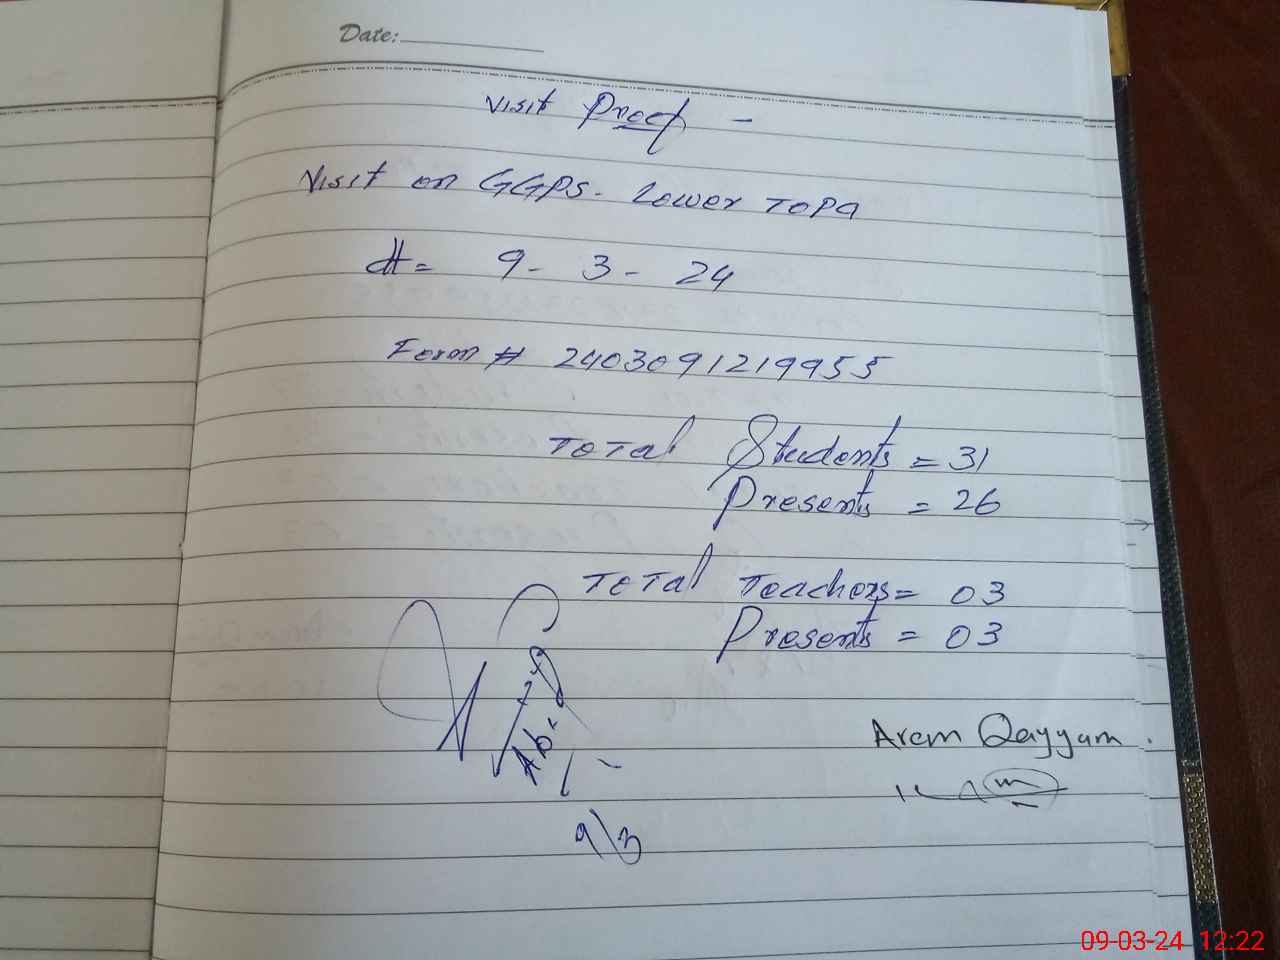 Date:
Visit Proof -
Visit on GGPS. Lower Topa
dt= 9- 3- 24
Form # 2403091219955
Total Students = 31
Presents = 26
Total Teachers = 03
Presents = 03
Arem Qayyum.
9/3
09-03-24 12:22